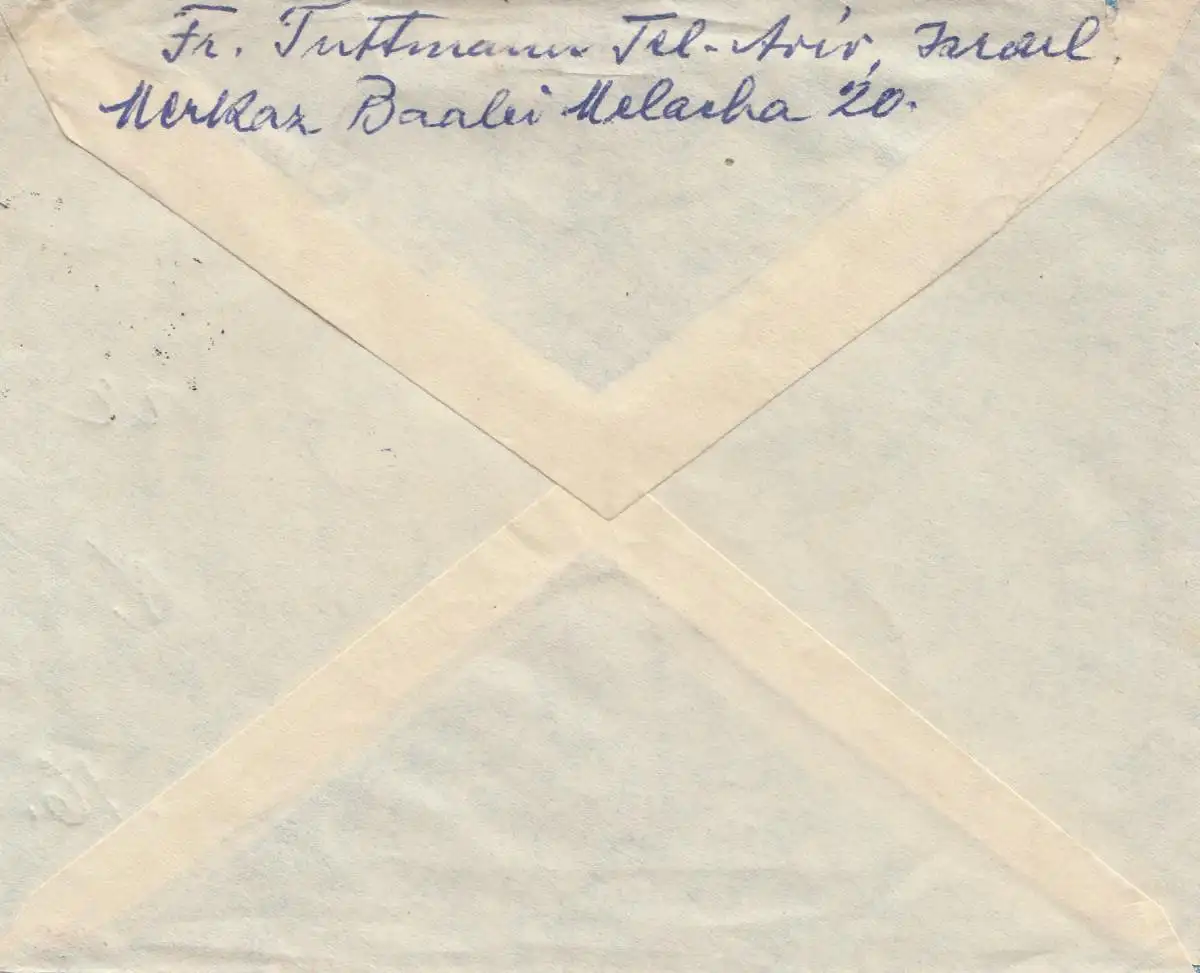 Fr. Tuttmann Tel-Aviv, Israel.
Merkaz Baalei Melacha 20.